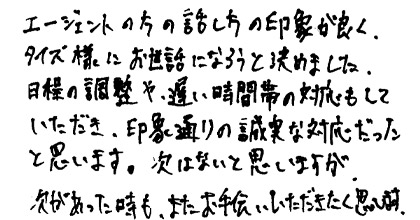 エージェントの方の話し方の印象が良く、
タイズ様にお世話になろうと決めました。
日程の調整や、遅い時間帯の対応もして
いただき、印象通りの誠実な対応だった
と思います。次はないと思いますが、
次があった時も、またお手伝いいただきたく思います。